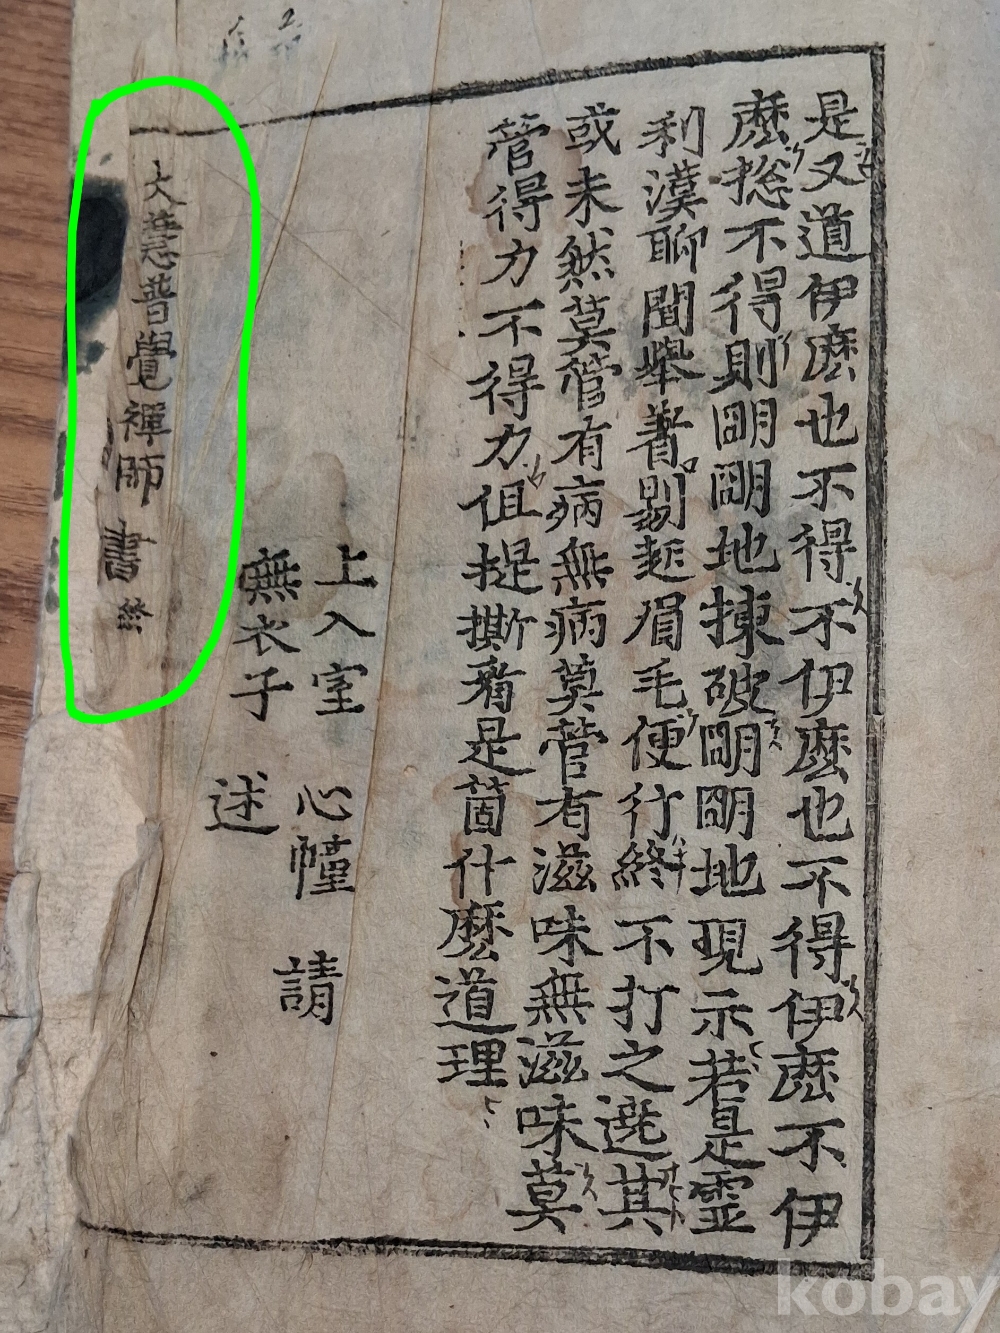 是又道伊麽也不得不伊麽也不得伊麽不伊
麽捴不得則明明地揀破明明地現示若是靈
利漢聊聞擧着剔起眉毛便行終不打之遶其
或未然莫管有病無病莫管有滋味無滋味莫
管得力不得力但提撕看是箇什麽道理
上入室 心幢 請
無衣子 述
大慧普覺禪師 書 終
kobay